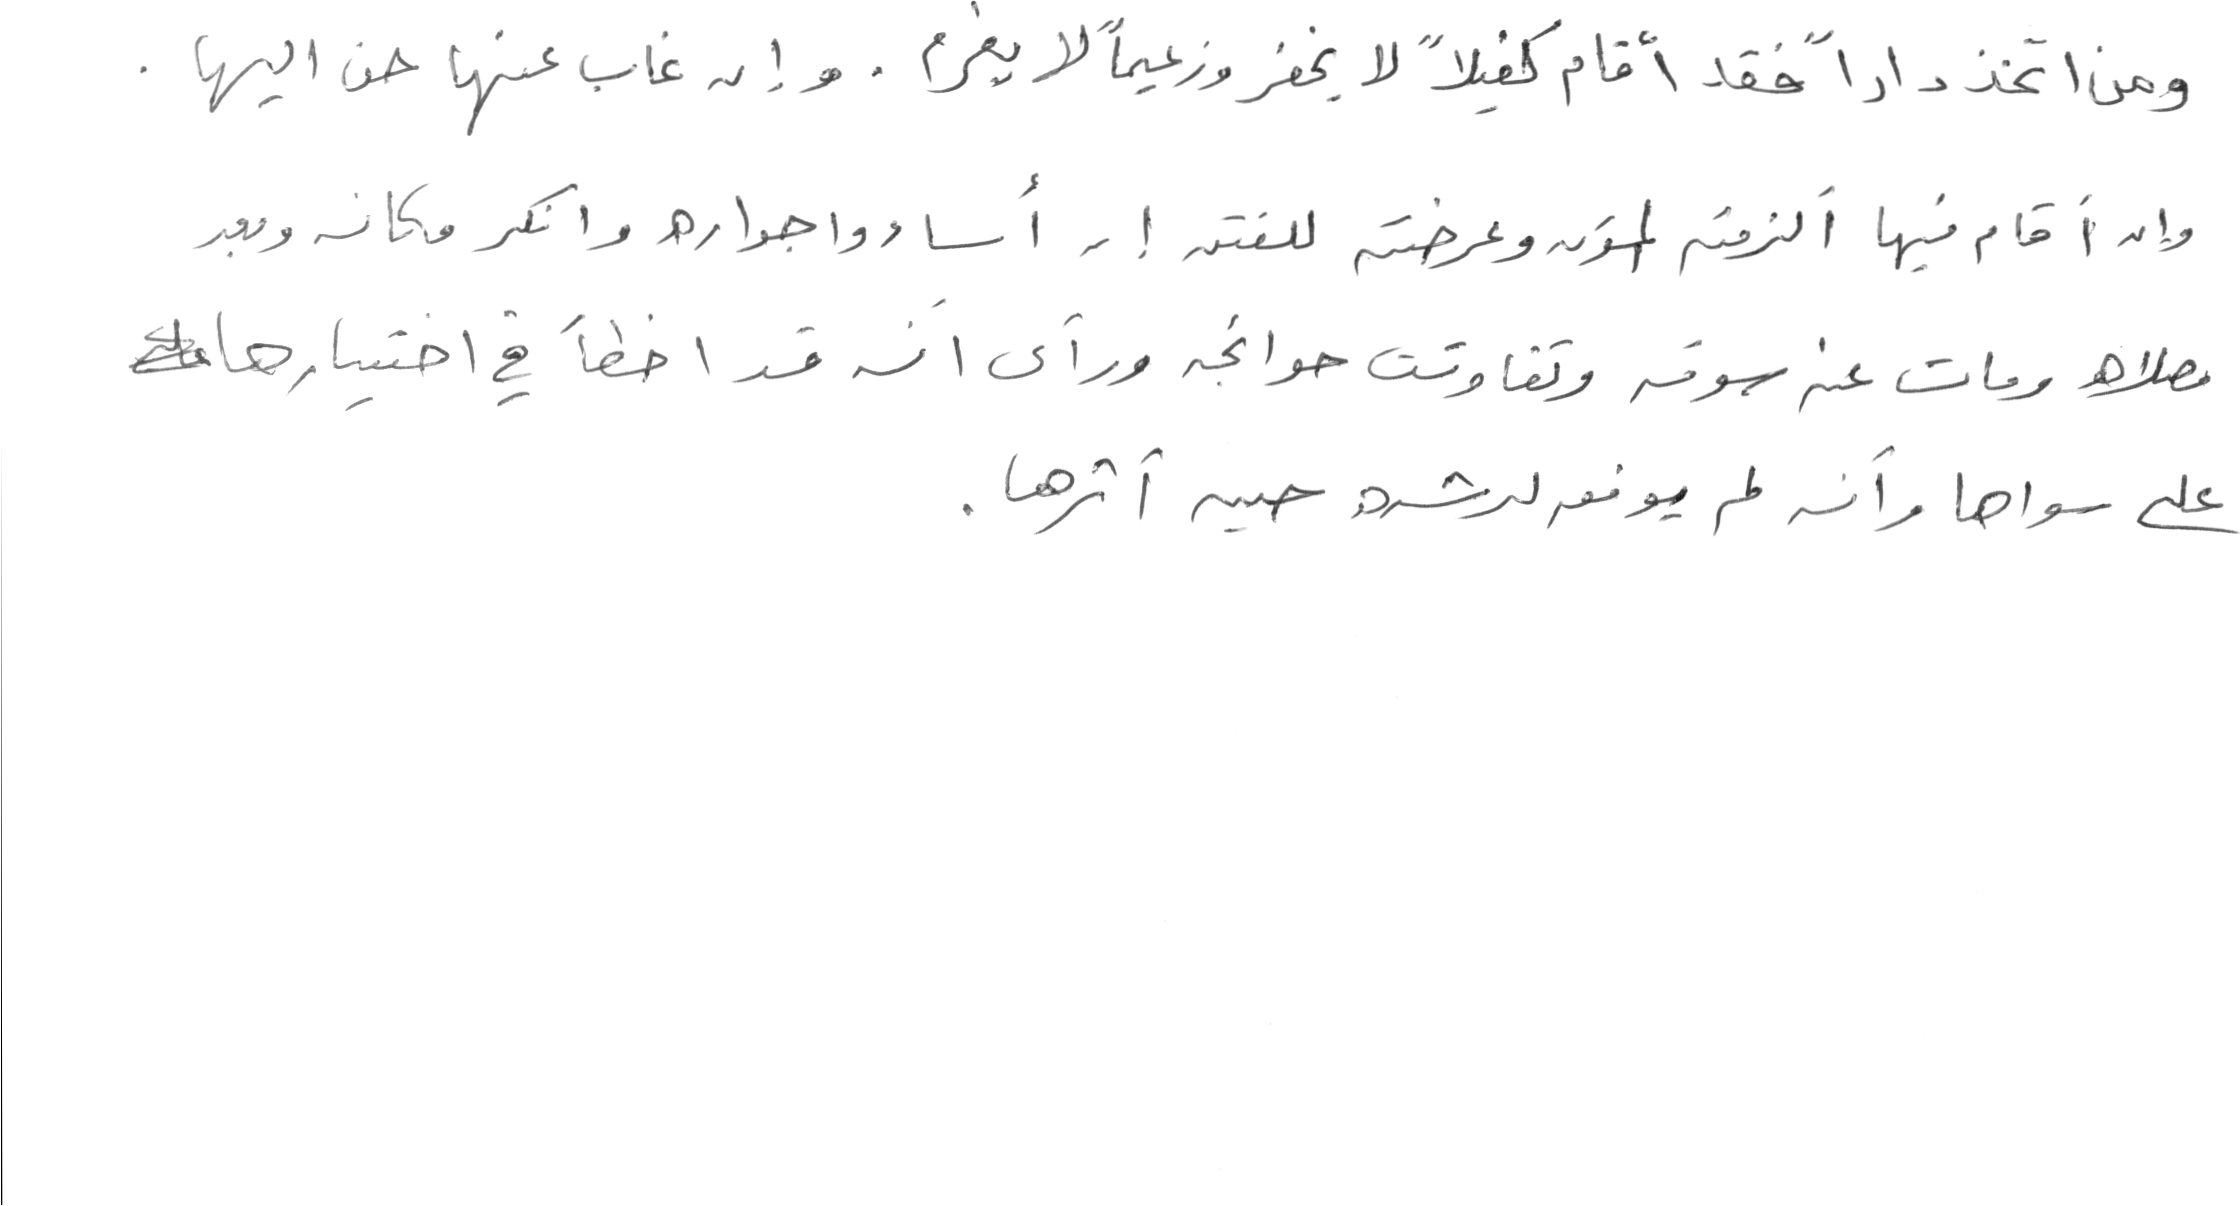 ومن اتخذ داراً فقد أقام كفيلاً لا يخفر وزعيماً لا يغرم . وإن غاب عنها حن اليها .
وإن أقام فيها ألزمته المؤن وعرضته للفتن إن أساءوا جواره وانكر مكانه وبعد
مصلاه ومات عنه سوقه وتفاوتت حوائجه ورأى أنه قد اخطأ في اختيارها
على سواها وأنه لم يوفق لرشده حين آثرها .